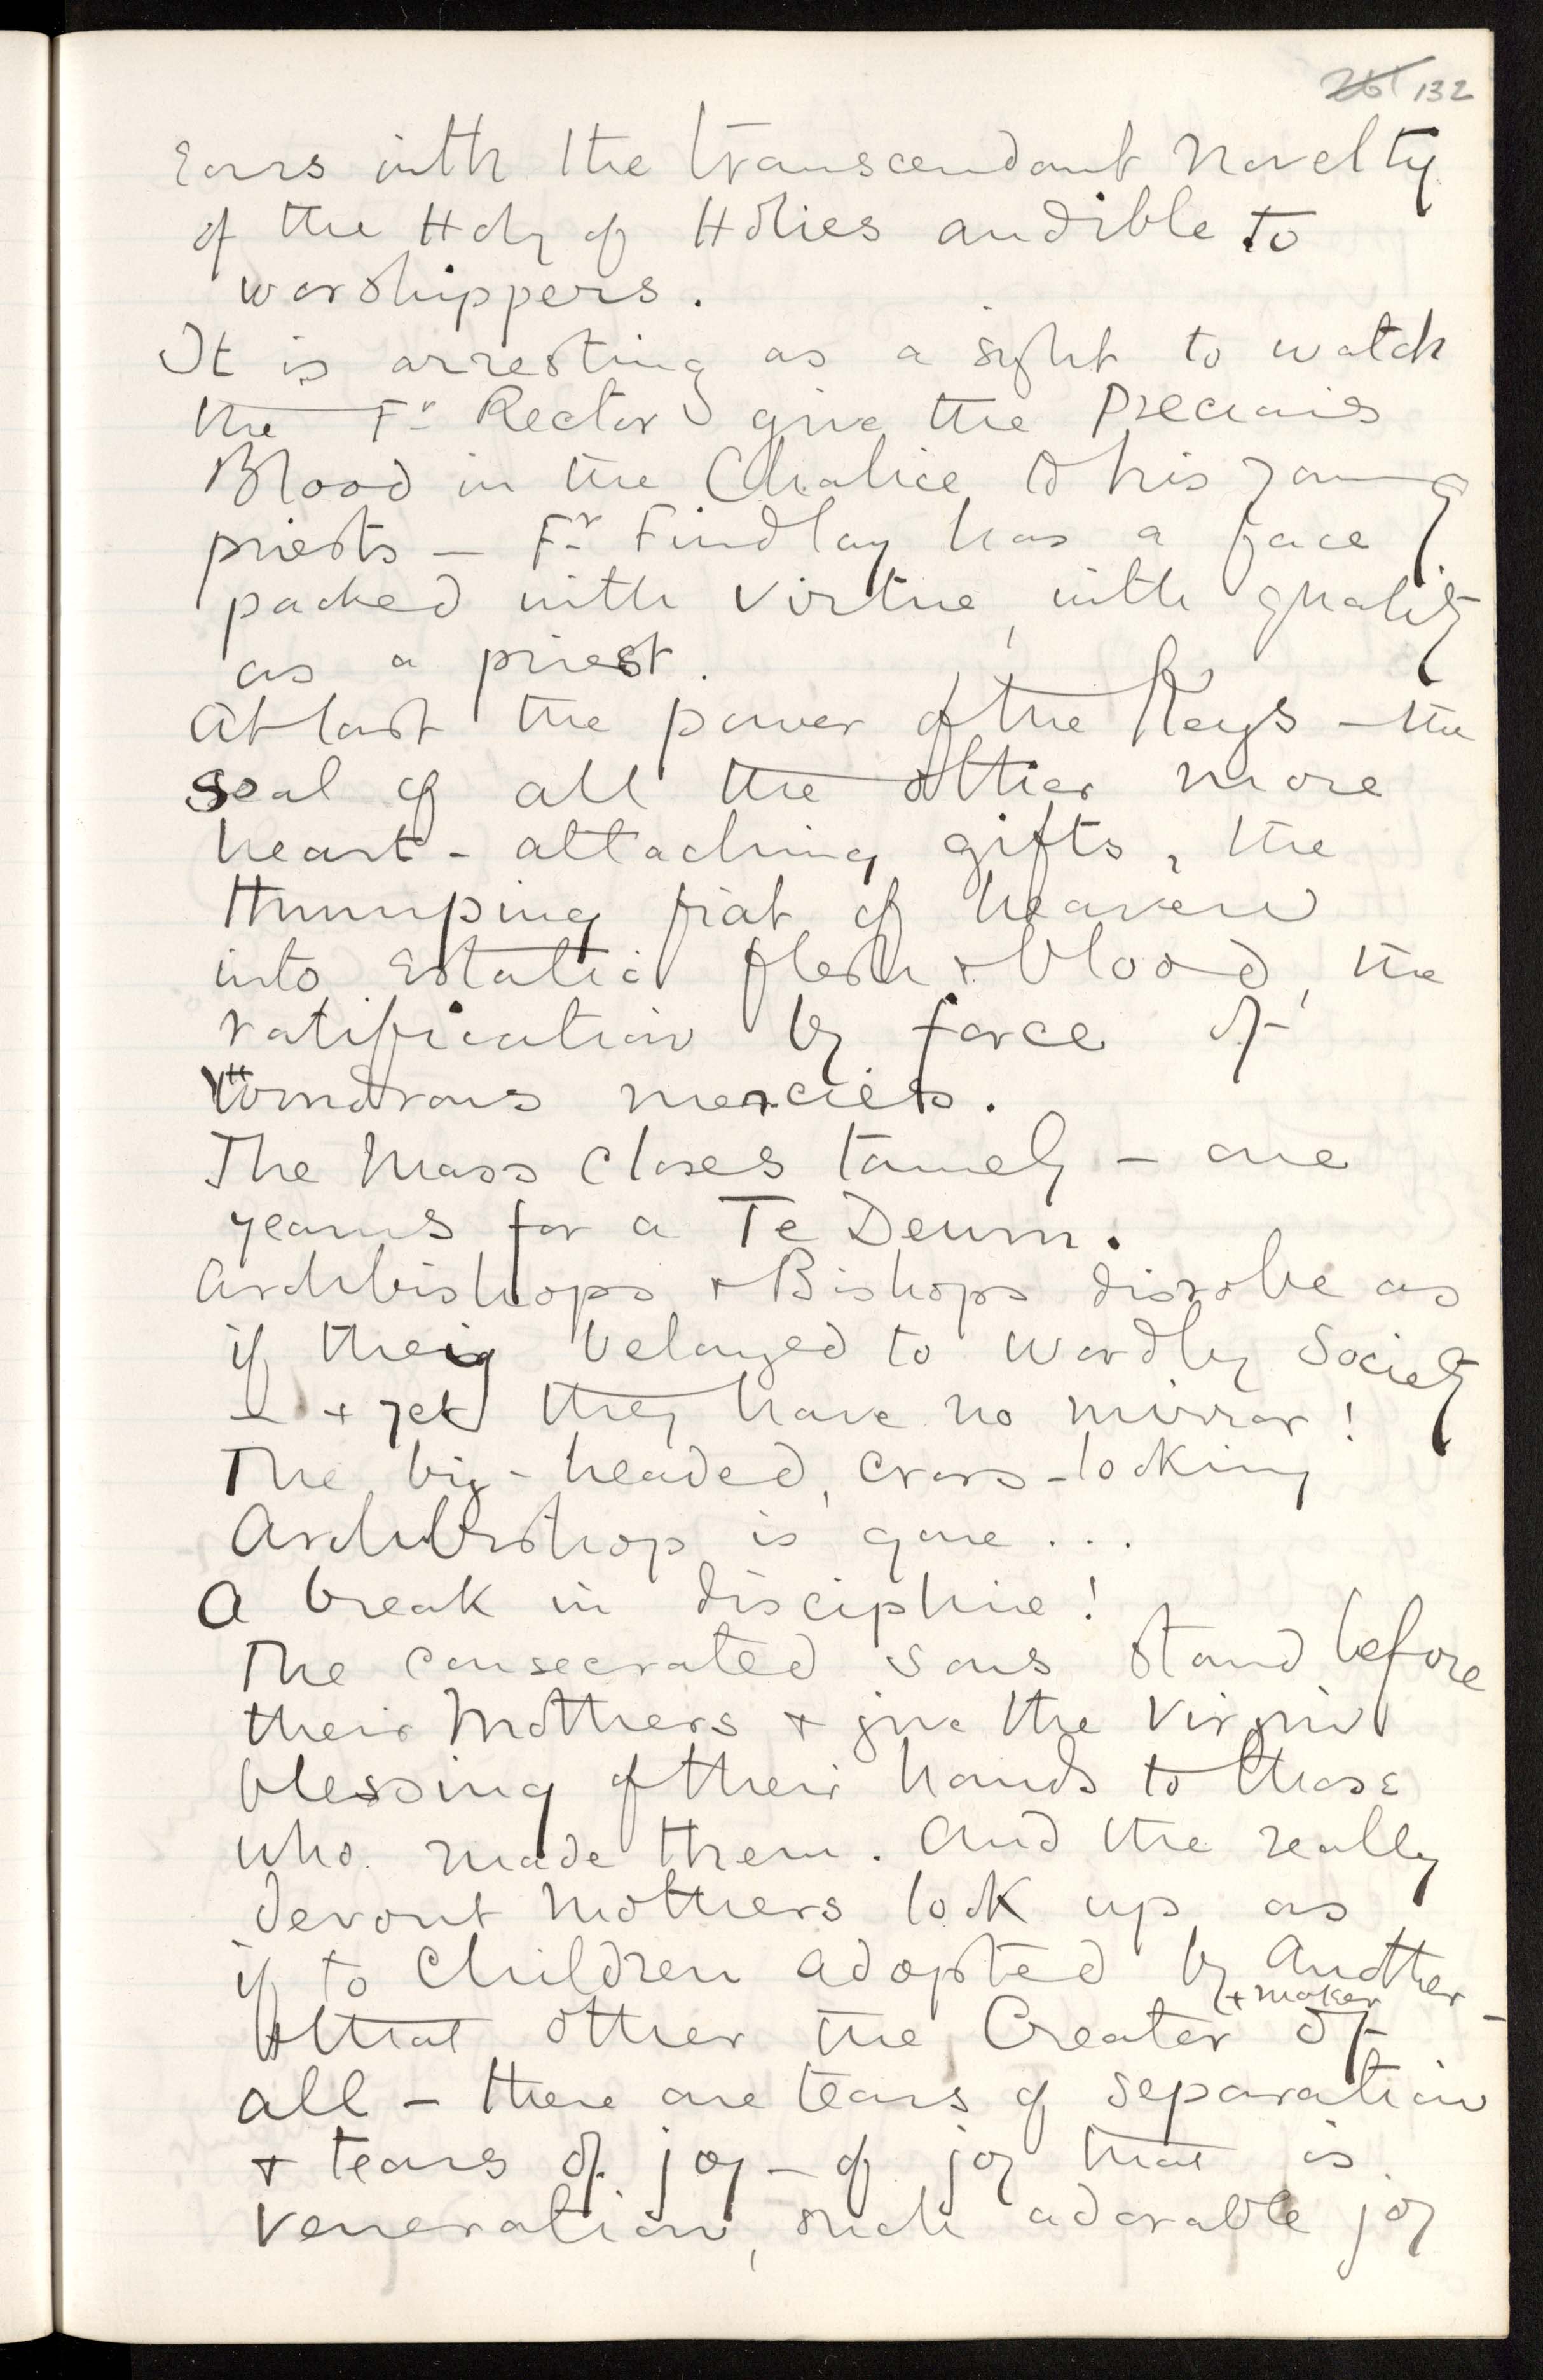 132
Ears with the transcendant novelty
of the Holy of Holies audible to
worshippers.
It is arresting as a sight to watch
the Fr Rector give the Precious
Blood in the Chalice to his young
priests — Fr Findlay has a face
packed with virtue, with quality
as a priest.
At last the power of the Keys — the
seal of all the other more
heart-attaching gifts, the
fiat of heaven
into flesh & blood, the
ratification by force of
wondrous mercies.
The Mass closes tamely — one
yearns for a Te Deum.
Archbishops & Bishops disrobe as
if they belonged to wordly Society
— & yet they have no mirror!
The big-headed, cross-looking
Archbishop is gone...
A break in discipline!
The consecrated sons stand before
their Mothers & give the Virgin
blessing of their hands to those
who made them. And the really
devout Mothers look up as
if to Children adopted by Another —
that other the Creator + maker of
all — there are tears of separation
& tears of joy — of joy that is
veneration, such adorable joy